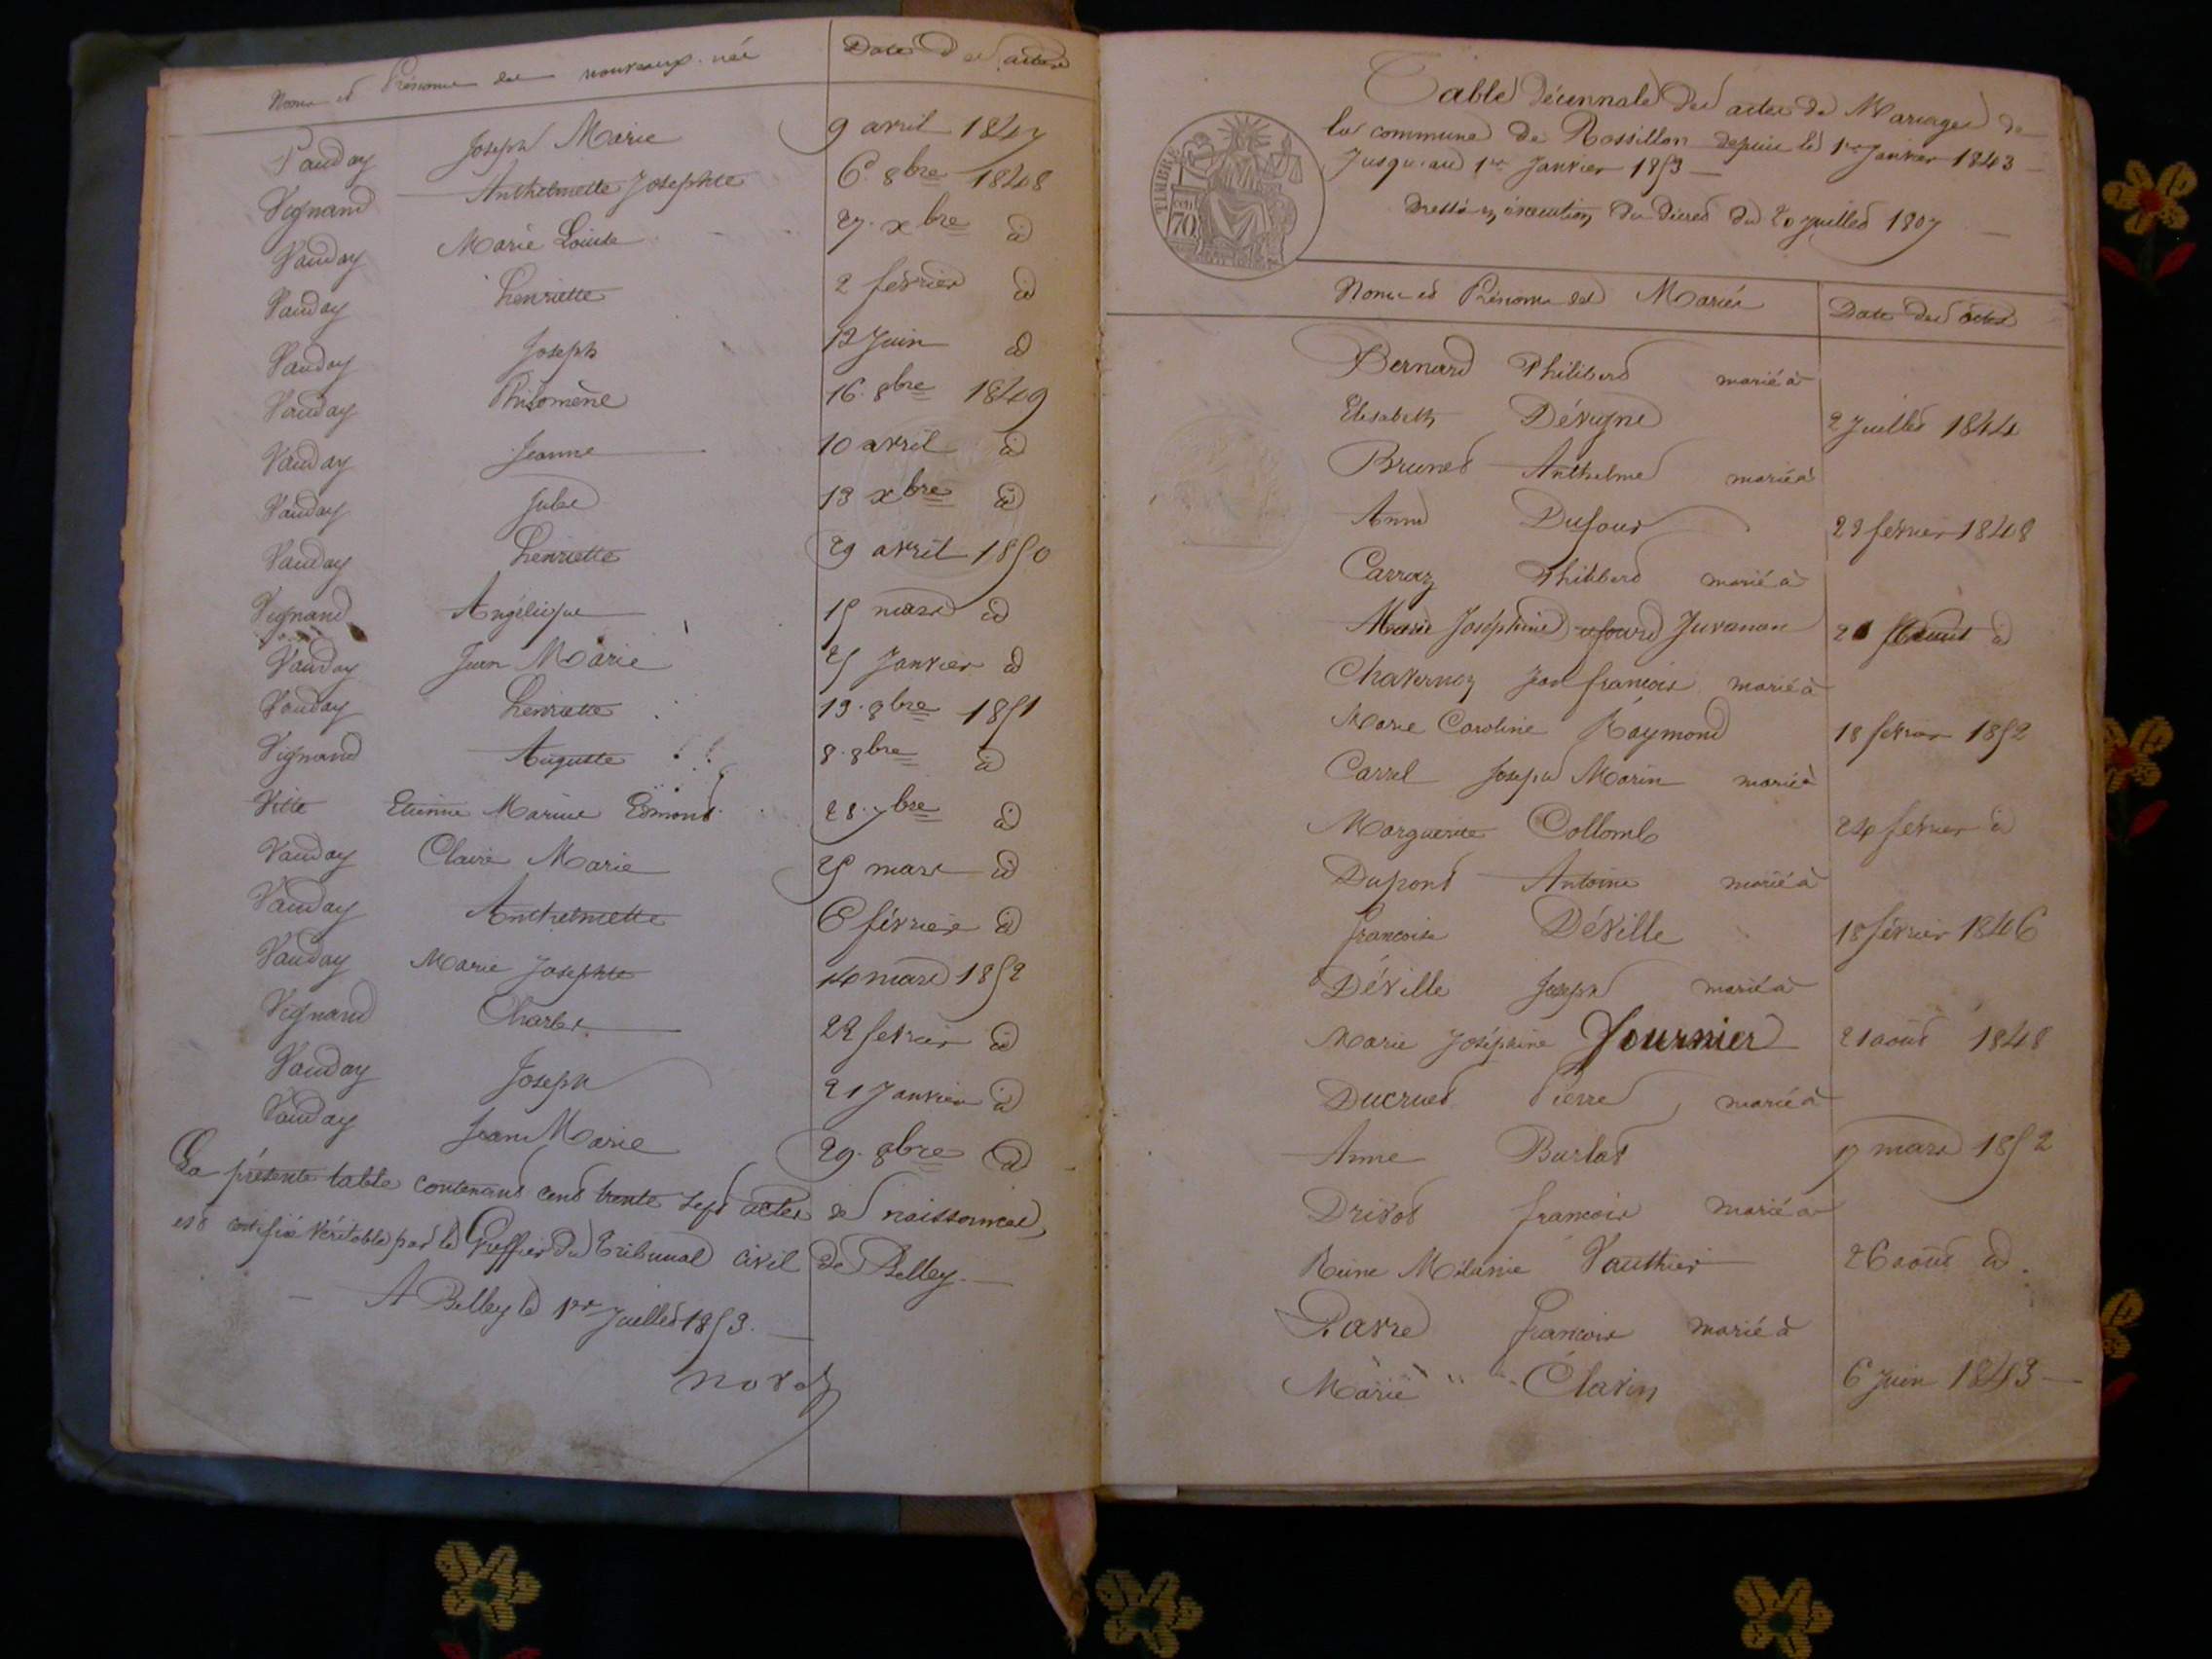 Noms et Prénoms des nouveaux-nés Dates des actes
Vauday Joseph Marie 9 avril 1847
Vignand Anthelmette Josephte 6 8bre 1848
Vauday Marie Louise 27 xbre id
Vauday henriette 2 février id
Vauday Joseph 12 Juin id
Vauday Philomène 16 8bre 1849
Vauday Jeanne 10 avril id
Vauday Julie 13 xbre id
Vauday henriette 29 avril 1850
Vignand Angélique 15 mars id
Vauday Jean Marie 25 Janvier id
Vauday henriette 19 9bre 1851
Vignand Auguste 8 8bre id
Vitte Etienne Marius Edmond 28 7bre id
Vauday Claire Marie 25 mars id
Vauday Anthelmette 6 février id
Vauday Marie Josephte 14 mars 1852
Vignand Charles 22 février id
Vauday Joseph 21 Janvier id
Vauday Jean Marie 29 9bre id
La présente table contenant cent trente sept actes de naissances,
est certifiée véritable par le Greffier du tribunal civil de Belley.
A Belley le 1er Juillet 1853.
TIMBRE
70
Table Décennale des actes de Mariages de
la commune de Rossillon depuis le 1er Janvier 1843
Jusqu'au 1er Janvier 1853
Dressé en exécution du Décret du 20 Juillet 1807
Noms et Prénoms des Mariés Date des actes
Bernard Philibert marié à
Elisabeth Dévigne 2 Juillet 1844
Brunet Anthelme marié à
Anne Dufour 22 février 1848
Carraz Philibert marié à
Marie Joséphine Juvanon 2 id
Chavernoz Jean françois marié à
Marie Caroline Raymond 18 février 1852
Carrel Joseph Marin marié à
Marguerite Collomb 24 février id
Dupont Antoine marié à
françoise Déville 18 février 1846
Déville Joseph marié à
Marie Joséphine Fournier 21 août 1848
Ducruet Pierre marié à
Anne Burlat 17 mars 1852
Drivot françois marié à
Reine Mélanie Vauthier 26 août id
Favre François marié à
Marie Clavin 6 Juin 1843